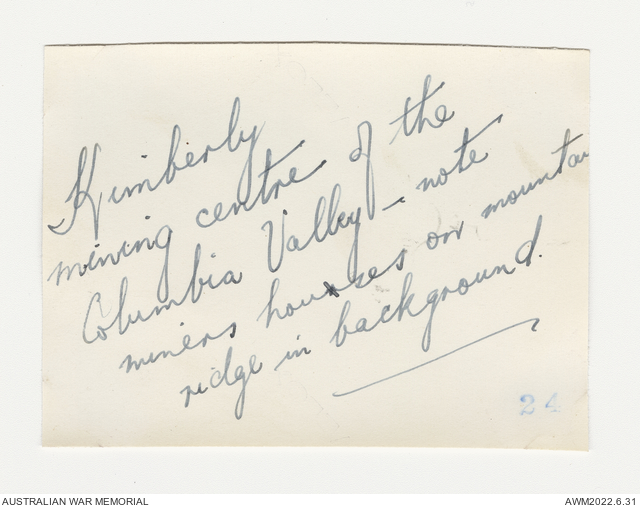 Kimberly
mining centre of the
Columbia Valley - note
miners houses on mountai
ridge in background.
24
AUSTRALIAN WAR MEMORIAL
AWM2022.6.31